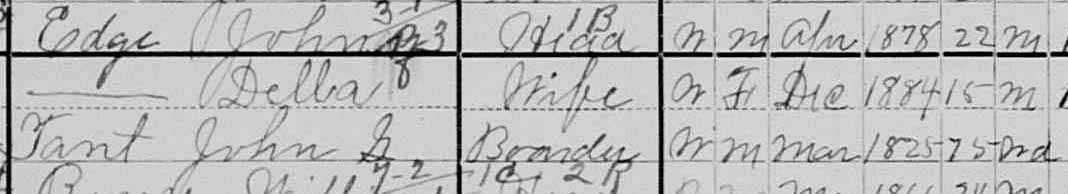 Edge John 3-1 3 Head 1B W M Apr 1878 22 M 1
—— Della Wife W F Dec 1884 15 M 1
Tant John G Boarder W M Mar 1825 75 Wd
7-2 2B